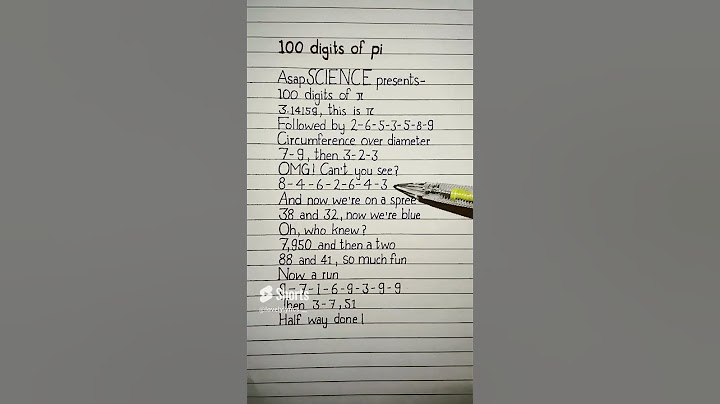 100 digits of pi
AsapSCIENCE presents-
100 digits of π
3.14159, this is π
Followed by 2-6-5-3-5-8-9
Circumference over diameter
7-9, then 3-2-3
OMG! Can't you see?
8-4-6-2-6-4-3
And now we're on a spree
38 and 32, now we're blue
Oh, who knew?
7,950 and then a two
88 and 41, so much fun
Now a run
9-7-1-6-9-3-9-9
Shorts
Then 3-7, 51
Half way done!